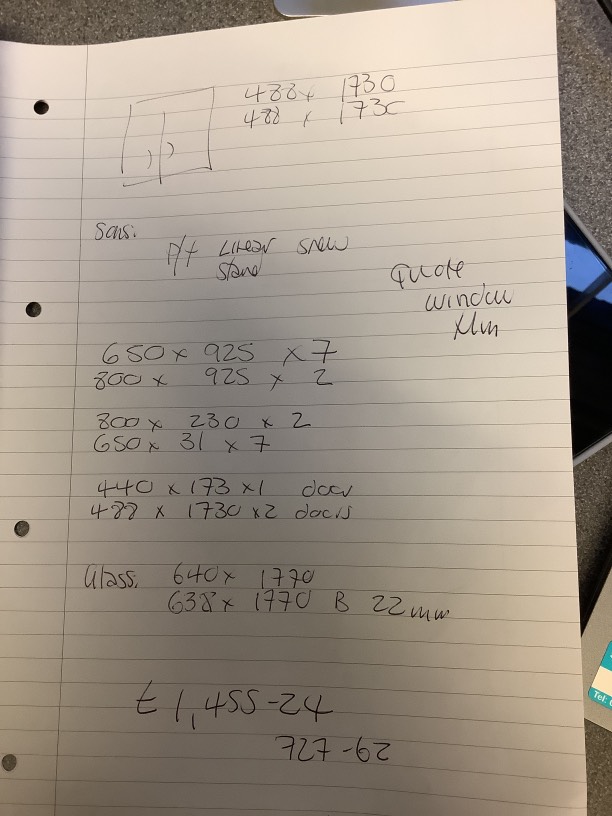 488 x 1730
488 x 1730
Sons:
P/t Linear snow
stand
Quote
window
650 x 925 x 7
800 x 925 x 2
800 x 230 x 2
650 x 31 x 7
440 x 173 x 1 door
488 x 1730 x 2 doors
Glass. 640 x 1770
638 x 1770 B 22mm
£1,455-24
727-62
Tel: